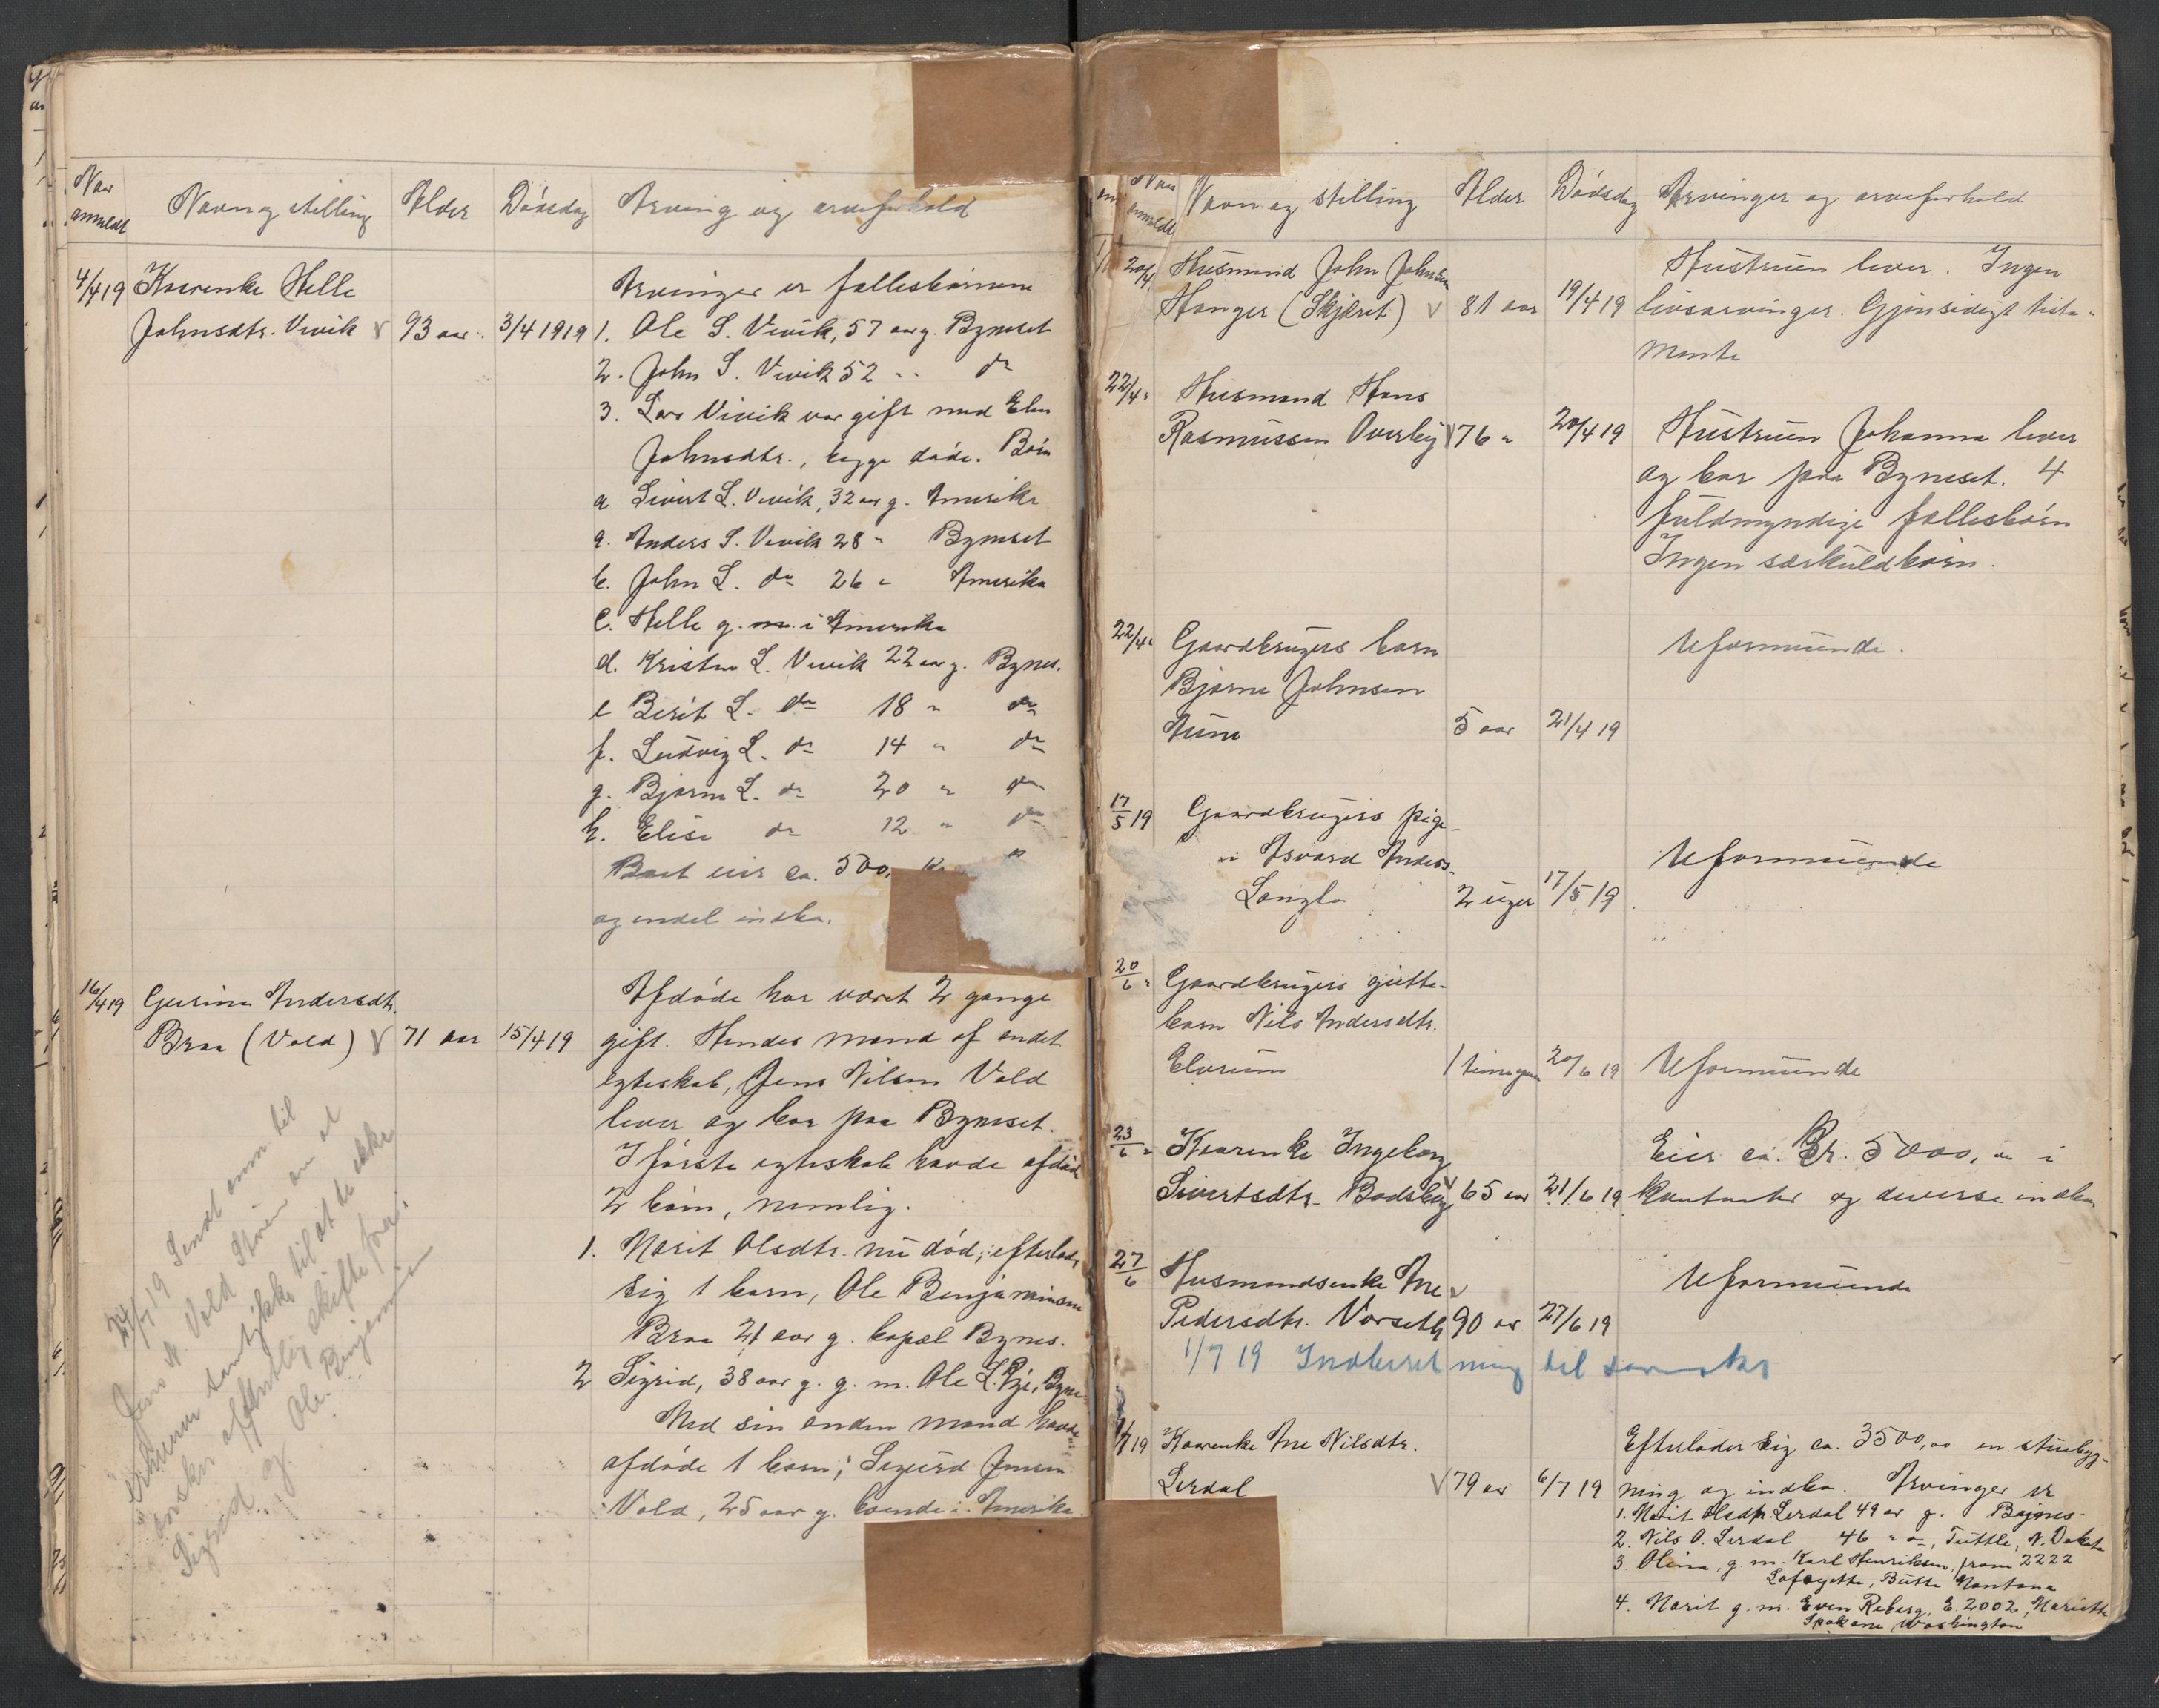 Naar
anmeldt
Navn og stilling
Alder
Dødsdag
Arving og arveforhold
4/4 19 Kaarenke Helle
Johnsdtr. Vivik V 93 aar. 3/4 1919
Arvinger er fællesbørnene
1. Ole S. Vivik, 57 aar g. Byneset
2. John S. Vivik 52 " do
3. Lars Vivik var gift med Elen
Johnsdtr., begge døde. Børn
a Sivert L. Vivik, 32 aar g. Amerika
a. Anders L. Vivik 28 " Byneset
b. John L. do 26 " Amerika
c. Helle g. m. i Amerika
d. Kristen L. Vivik 22 aar g. Bynes.
e Berit L. do 18 " do
f. Ludvig L. do 14 " do
g. Bjarne L. do 20 " do
h. Elise do 12 " do
Boet eier ca. 500, Kr
og endel indbo.
16/4 19 Gurine Andersdtr.
Braa (Vold) V 71 aar 15/4 19
Afdøde har været 2 gange
gift. Hendes mand af andet
egteskab, Jens Nilsen Vold
lever og bor paa Byneset.
I første egteskab havde afdøde
2 børn, nemlig.
1. Marit Olsdtr. nu død, efterlader
sig 1 barn, Ole Benjaminsen
Braa 21 aar g. bopæl Bynes.
2 Sigrid, 38 aar g. g. m. Ole L. Bynes
Med sin anden mand havde
afdøde 1 barn; Sigurd Jensen
Vold, 25 aar g. boende i Amerika.
24/4 19 Sendt anm til
Jens N. Vold Støren om at
erklære samtykke til at de ikke
ønsker offentlig skifte for:
Sigrid og Ole Benjaminsen
Naar
anmeldt
Navn og stilling
Alder
Dødsdag
Arvinger og arveforhold
20/4 Husmand John Johnsen
Hanger (Skjæret) V 81 aar 19/4 19
Hustruen lever. Ingen
livsarvinger. Gjensidigt testa-
mente
22/4 " Husmand Hans
Rasmussen Overby V 76 " 20/4 19
Hustruen Johanna lever
og bor paa Byneset. 4
fuldmyndige fællesbørn
Ingen særkuldbørn.
22/4 " Gaardbrugers barn
Bjarne Johnsen
Aune 5 aar 21/4 19
Uformuende.
17/5 19 Gaardbrugers pige-
Asvard Anders-
Langlo 2 uger 17/5 19
Uformuende
20/6 " Gaardbrugers gutte-
barn Nils Andersdtr.
Elvrum 1 time gam 20/6 19 Uformuende
23/6 " Kaarenke Ingeborg
Sivertsdtr. Bodsberg V 65 aar 21/6 19
Eier ca. Kr. 5000, oo i
kontanter og diverse indbo
27/6 Husmandsenke Ane V
Pedersdtr. Vorseth 90 aar 27/6 19
Uformuende
1/7 19 Indberetning til
7/7 19 Kaarenke Ane Nilsdtr.
Lerdal V 79 aar 6/7 19
Efterlader sig ca. 3500,oo en stuebyg-
ning og indbo. Arvinger er
1. Marit Olsdtr. Lerdal 49 aar g. Bynes.
2. Nils O. Lerdal 46 " do, Tuttle, N. Dakota
3. Olina, g. m. Karl Henriksen, from 2222
Lafayette, Butte Montana
4. Marit g. m. Even Reberg, E. 2002, Marietta
Spokane, Washington